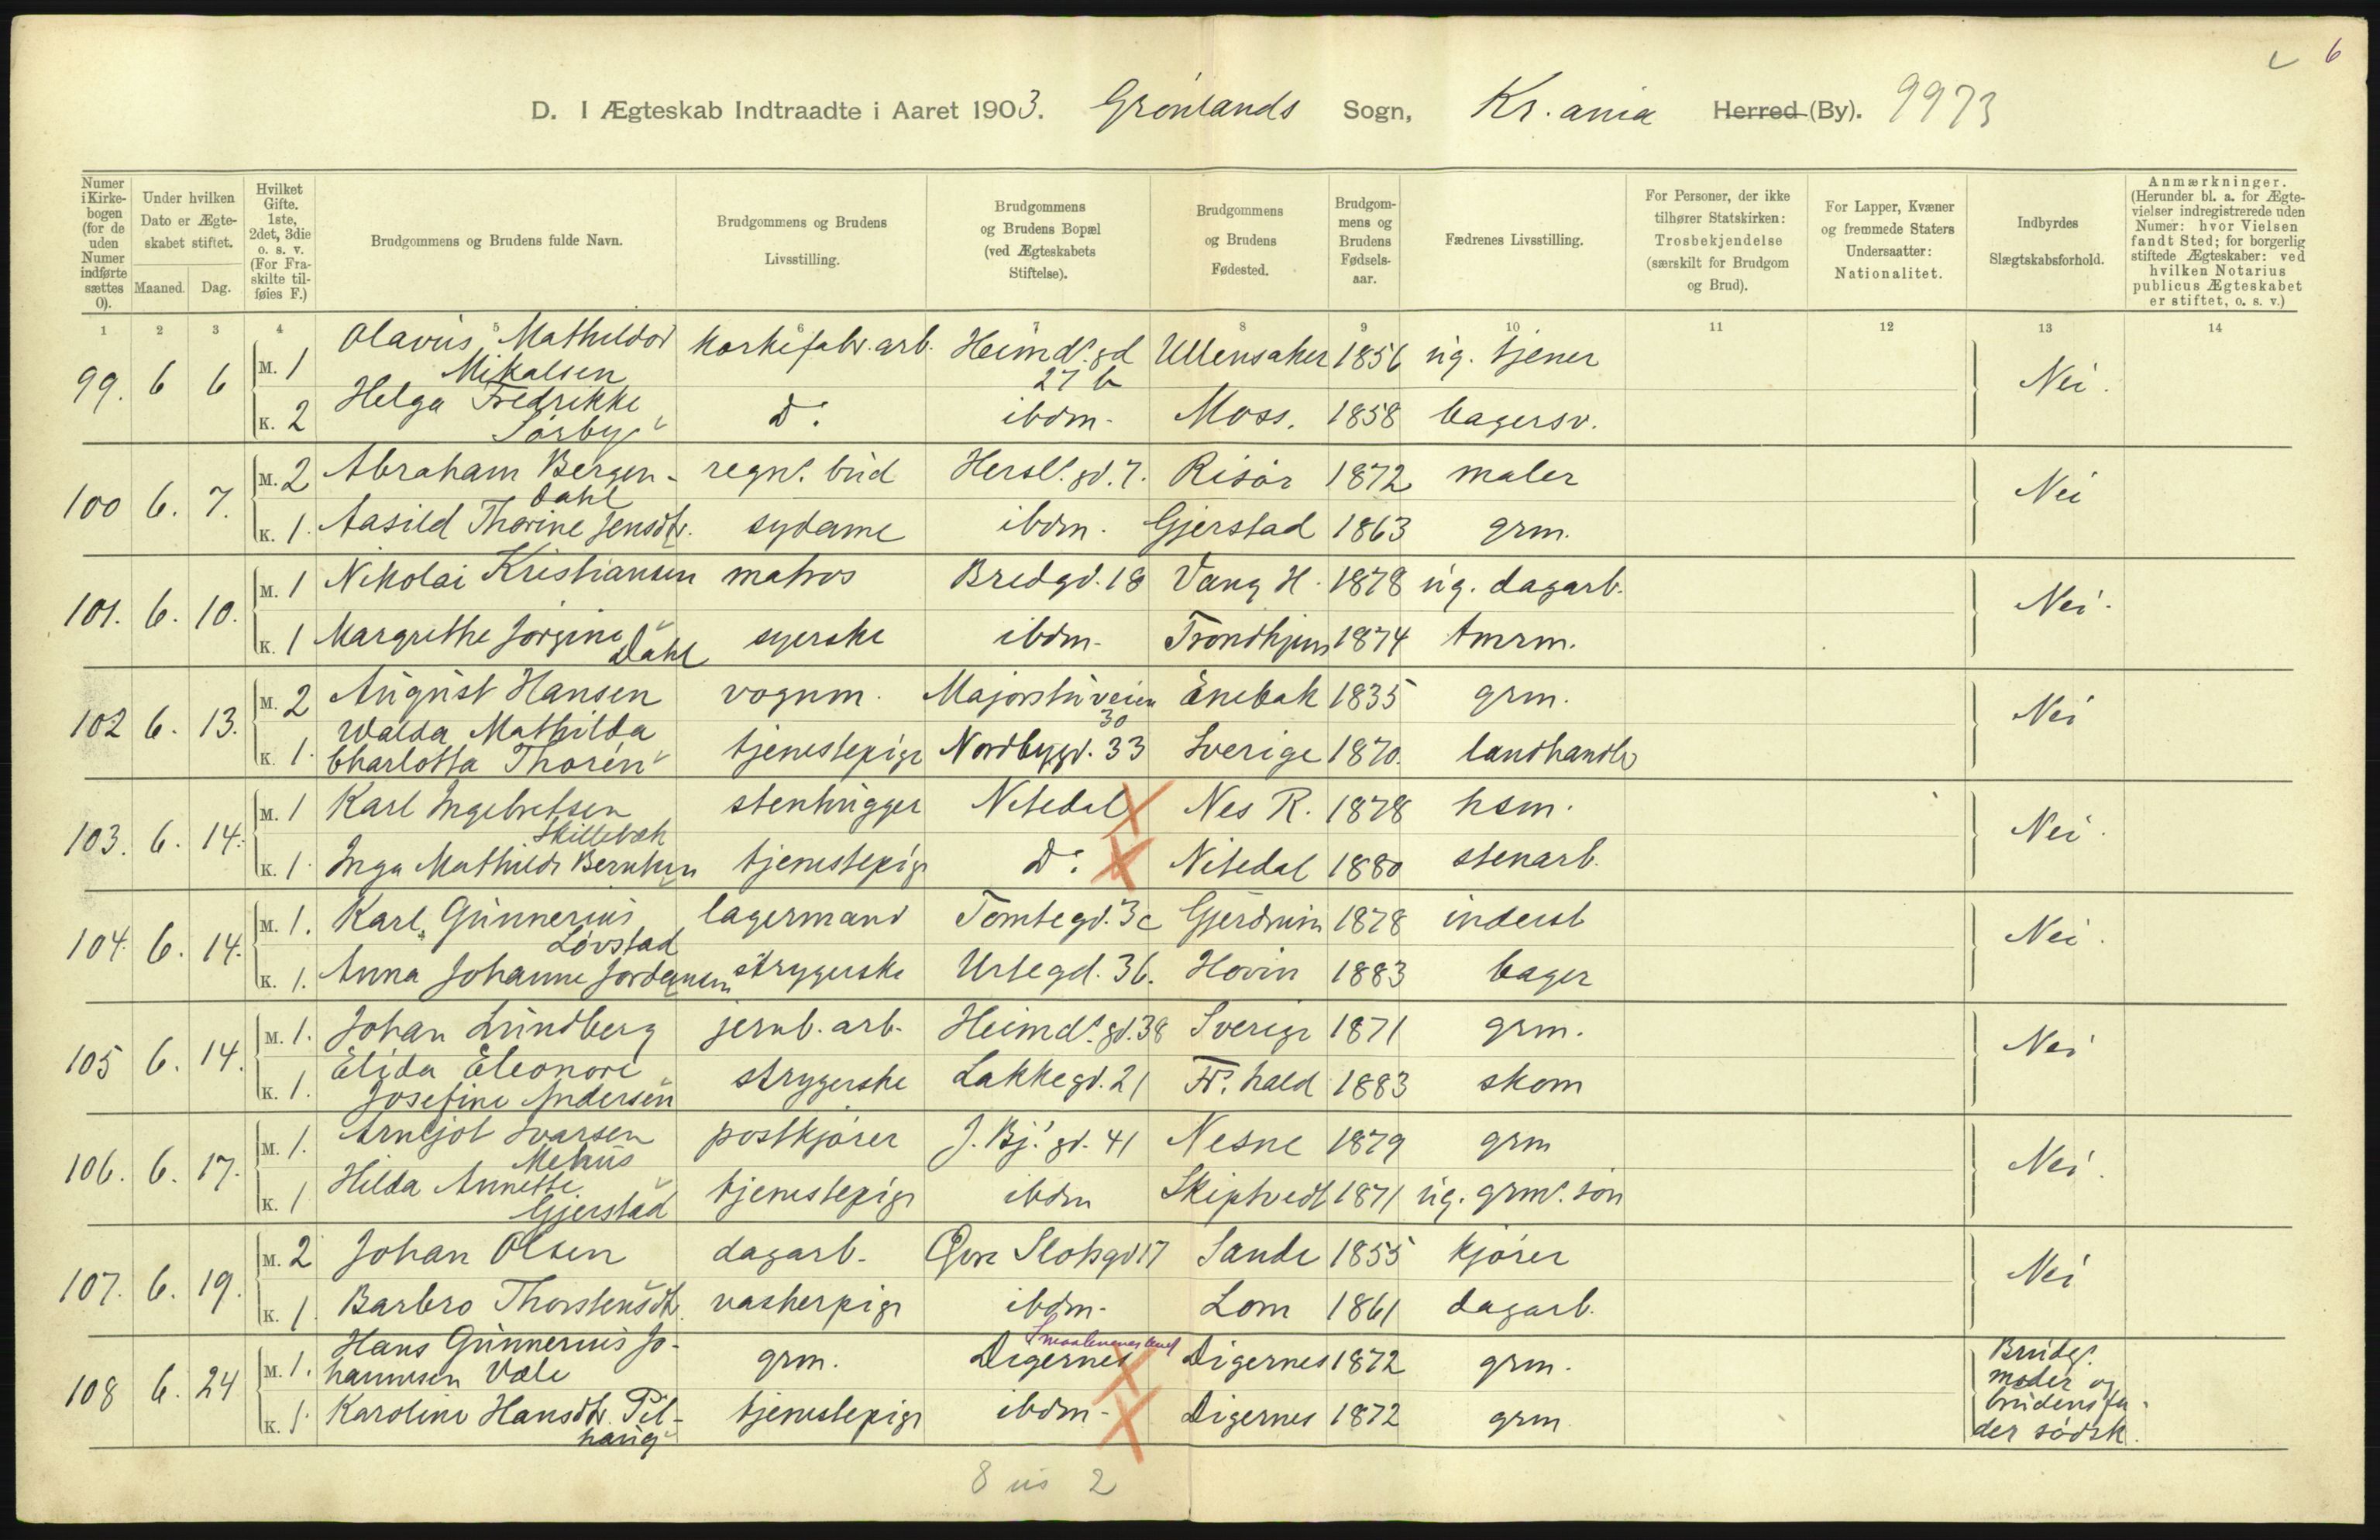 6
D. I Ægteskab Indtraadte i Aaret 1903. Grønlands Sogn, Kr.ania Herred (By). 9973
Numer i Kirkebogen (for de uden Numer indførte sættes 0).
Under hvilken Dato er Ægteskabet stiftet.
Maaned. Dag.
Hvilket Gifte. 1ste, 2det, 3die o. s. v. (For Fraskilte tilføies F.)
Brudgommens og Brudens fulde Navn.
Brudgommens og Brudens Livsstilling.
Brudgommens og Brudens Bopæl (ved Ægteskabets Stiftelse).
Brudgommens og Brudens Fødested.
Brudgommens og Brudens Fødselsaar.
Fædrenes Livsstilling.
For Personer, der ikke tilhører Statskirken: Trosbekjendelse (særskilt for Brudgom og Brud).
For Lapper, Kvæner og fremmede Staters Undersaatter: Nationalitet.
Indbyrdes Slægtskabsforhold.
Anmærkninger. (Herunder bl. a. for Ægtevielser indregistrerede uden Numer: hvor Vielsen fandt Sted; for borgerlig stiftede Ægteskaber: ved hvilken Notarius publicus Ægteskabet er stiftet, o. s. v.)
1 2 3 4 5 6 7 8 9 10 11 12 13 14
99. 6 6 M. 1 Olavus Mathildor Mikalsen korkefabr. arb. Heimds. gd 27 b Ullensaker 1856 ug. tjener Nei.
K. 2 Helga Fredrikke Sørby Do. ibdm. Moss. 1858 bagersv.
100 6. 7. M. 2 Abraham Bergen-Dahl regns. bud Hersls. gd. 7. Risør 1872 maler Nei
K. 1. Aasild Thorine Jensdtr. sydame ibdm. Gjerstad 1863 grm.
101. 6. 10. M. 1 Nikolai Kristiansen matros Bredgd. 18 Vang H. 1878 ug. dagarb. Nei.
K. 1 Margrethe Jørgine Dahl syerske ibdm. Trondhjem 1874 tmrm.
102 6. 13. M. 2 August Hansen vognm. Majorstuveien 30 Enebak 1835 grm. Nei
K. 1. Walda Mathilda Charlotta Thorén tjenestepige Nordbygd. 33 Sverige 1870. landhandler
103. 6. 14. M. 1 Karl Ingebretsen Skillebæk stenhugger Nitedal Nes R. 1878 hsm. Nei.
K. 1. Inga Mathilde Berntsen tjenestepige Do. Nitedal 1880 stenarb.
104. 6. 14. M. 1. Karl Gunnerius Løvstad lagermand Tomtegd. 3c Gjerdrum 1878 inderst Nei.
K. 1. Anna Johanne Jordansen strygerske Urtegd. 36. Hovin 1883 bager
105 6. 14. M. 1. Johan Lundberg jernb. arb. Heimds. gd. 38 Sverige 1871 grm. Nei
K. 1. Elida Eleonore Josefine Andersen strygerske Lakkegd. 21 Fr. hald 1883 skom
106. 6. 17. M. 1. Arnljot Ivarsen Mehus postkjører J. Bj. gd. 41 Nesne 1879 grm Nei.
K. 1 Hilda Annette Gjerstad tjenestepige ibdm Skiptvedt 1871 ug. grms. søn
107. 6. 19. M. 2 Johan Olsen dagarb. Øvre Slotsgd 17 Sande 1855 kjører Nei
K. 1 Barbro Thorstensdtr. vaskerpige ibdm. Lom 1861 dagarb.
108 6. 24 M. 1. Hans Gunnerius Johannesen Væle grm. Digernes Smaalenenes amt Digernes 1872 grm. Brudgs. moder og brudens fader sødsk.
K. 1. Karoline Hansdtr. Pilhaug tjenestepige ibdm. Digernes 1872 grm
8 us 2